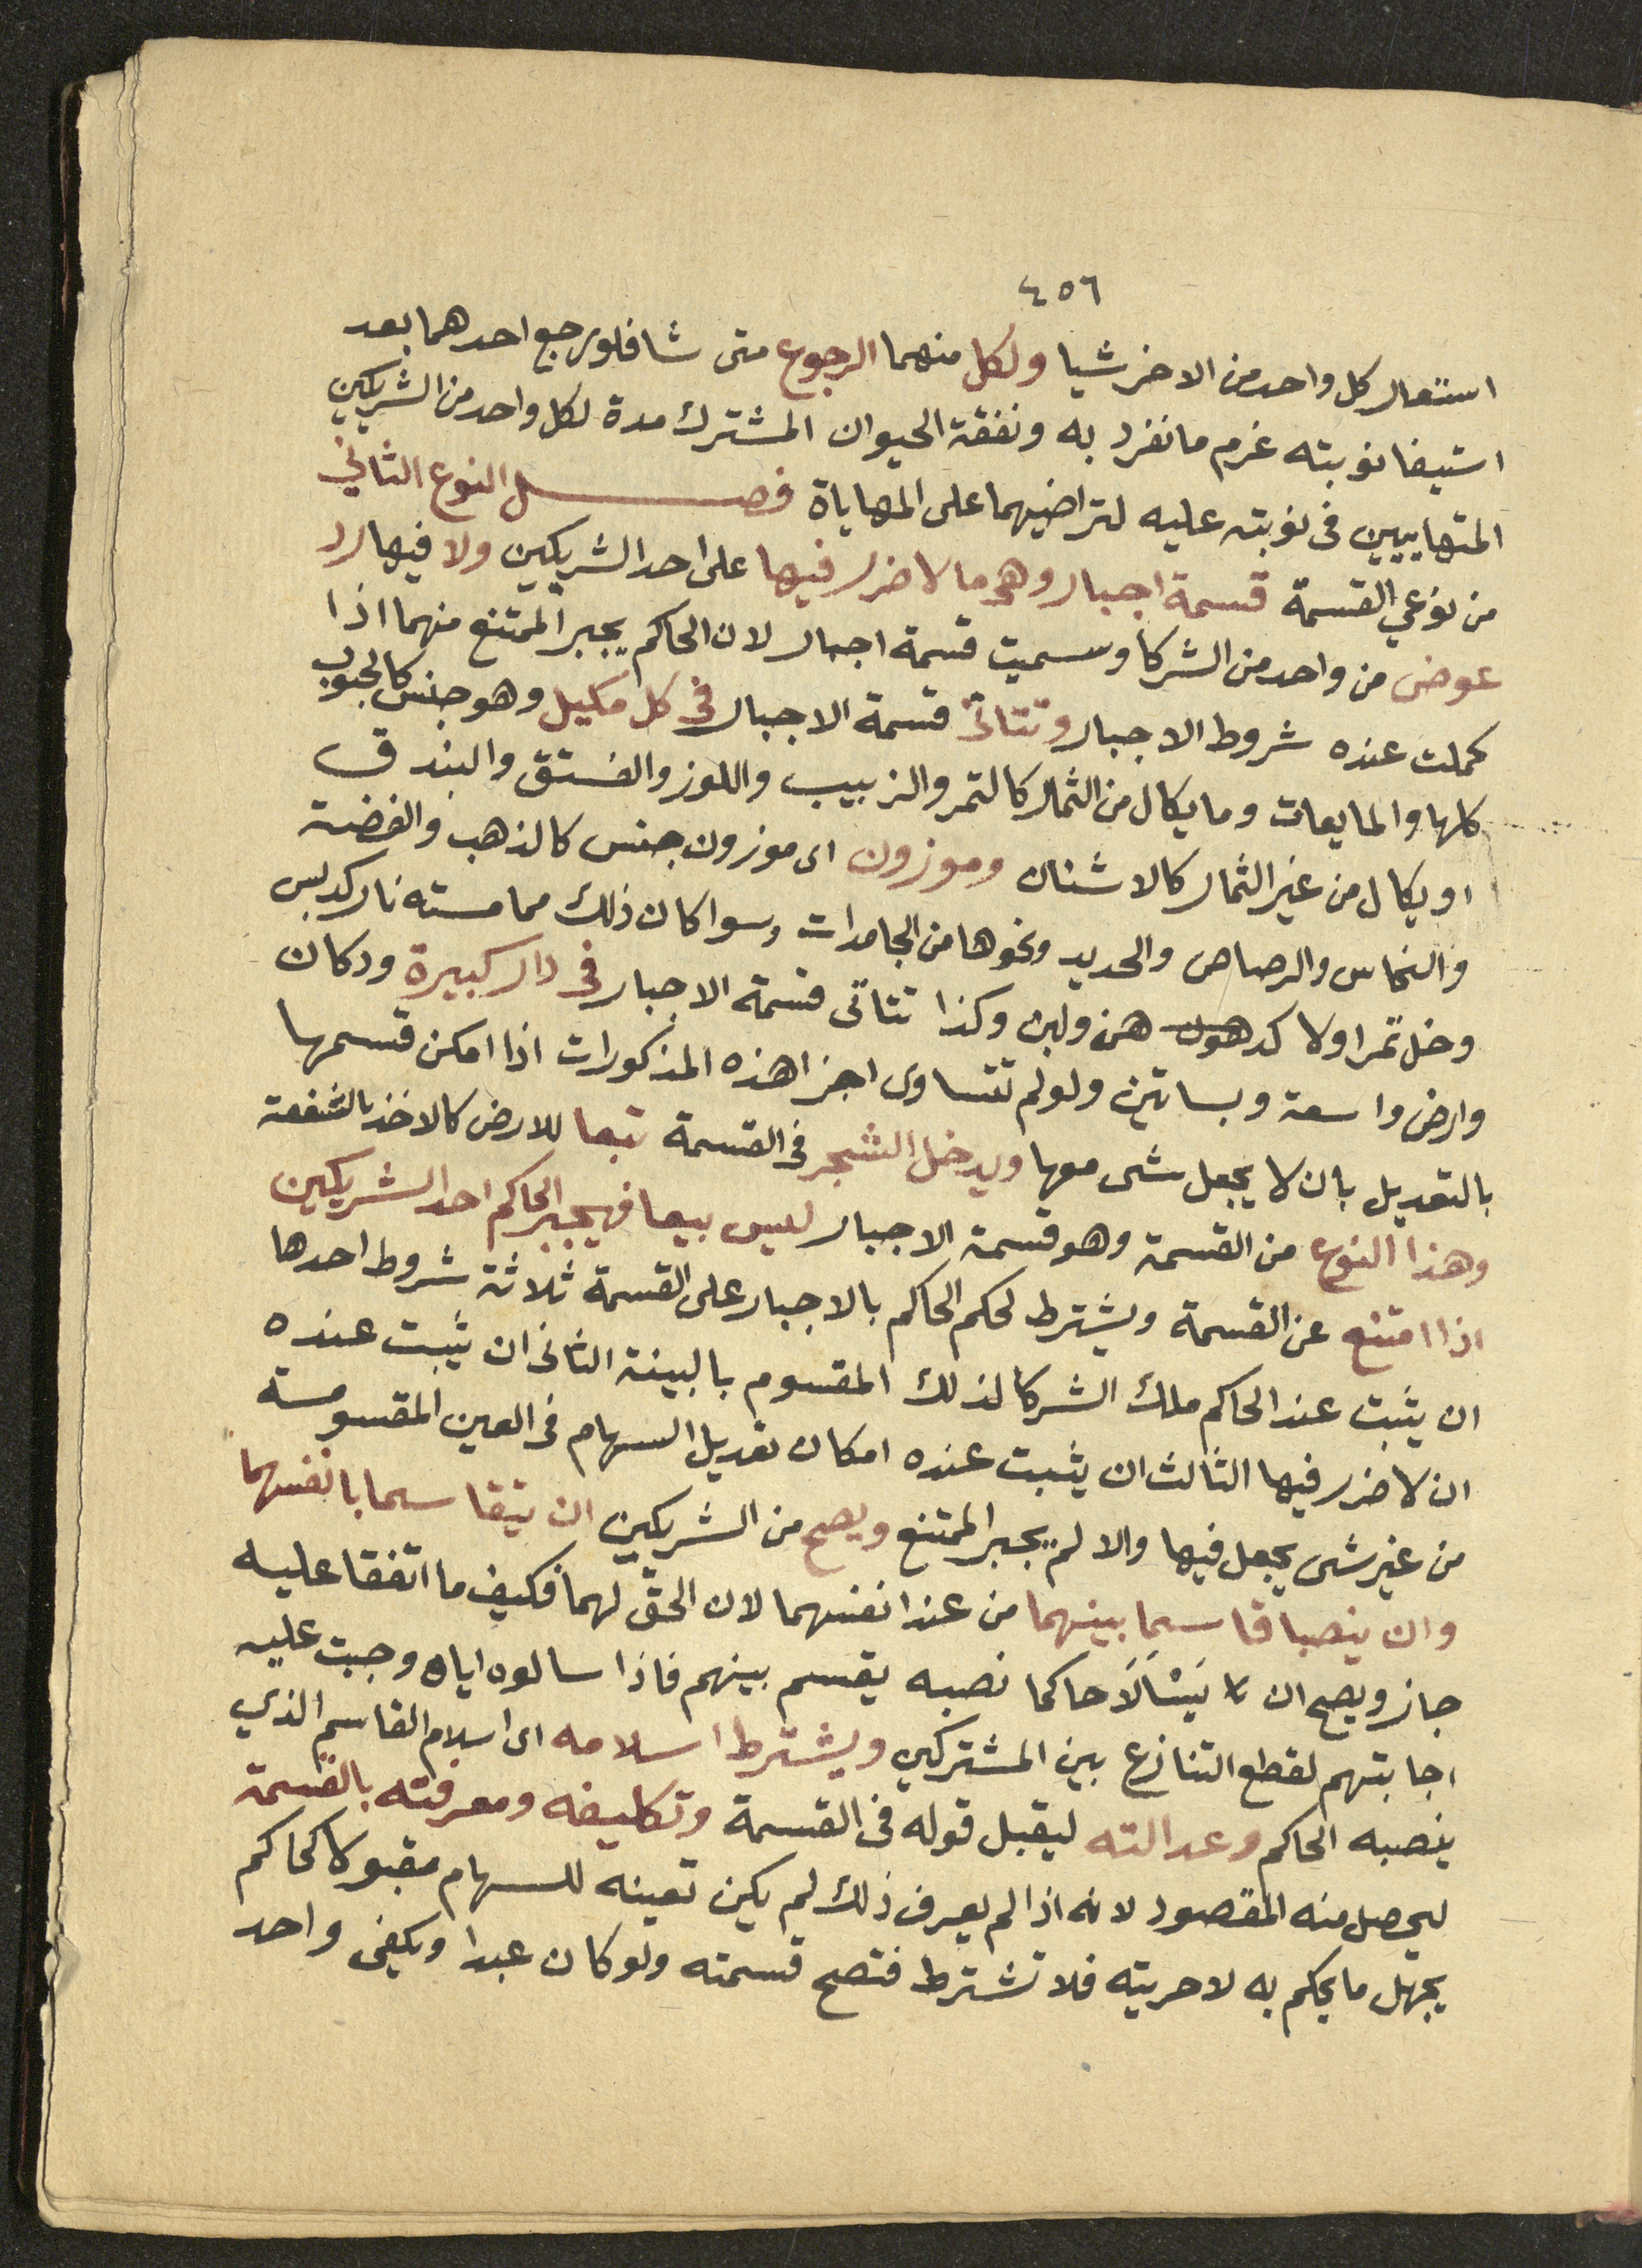 ٤٥٦
استعار كل واحد من الاخر شيا ولكل منهما الرجوع متى شا فلو رجع احدهما بعد
استيفا نوبته غرم ما نفرد به ونفقة الحيوان المشترك مدة لكل واحد من الشريكين
المتهاييين فى نوبته عليه لتراضيهما على المهاياة فصل النوع الثاني
من نوعي القسمة قسمة اجبار وهى ما لا ضرر فيها على احد الشريكين ولا فيها رد
عوض من واحد من الشركا وسميت قسمة اجبار لان الحاكم يجبر الممتنع منهما اذا
كملت عنده شروط الاجبار وتتاتى قسمة الاجبار فى كل مكيل وهو جنس كالحبوب
كلها والمايعات وما يكال من الثمار كالتمر والزبيب واللوز والفستق والبندق
او يكال من غير الثمار كالاشنان وموزون اى موزون جنس كالذهب والفضة
والنحاس والرصاص والحديد ونحوها من الجامدات وسوا كان ذلك مما مسته نار كدبس
وخل تمر اولا كدهون هن ولبن وكذا تتاتى قسمة الاجبار فى دار كبيرة ودكان
وارض واسعة وبساتين ولو لم تتساوى اجزا هذه المذكورات اذا امكن قسمها
بالتعديل بان لا يجعل شى معها ويدخل الشجر فى القسمة تبعا للارض كالاخذ بالشفعة
وهذا النوع من القسمة وهو قسمة الاجبار ليس بيعا فيجبر الحاكم احد الشريكين
اذا امتنع عن القسمة ويشترط لحكم الحاكم بالاجبار على القسمة ثلاثة شروط احدها
ان يثبت عند الحاكم ملك الشركا لذلك المقسوم بالبينة الثانى ان يثبت عنده
ان لا ضرر فيها الثالث ان يثبت عنده امكان تعديل السهام فى العين المقسومة
من غير شى يجعل فيها والا لم يجبر الممتنع ويصح من الشريكين ان يتقاسما بانفسهما
وان ينصبا قاسما بينهما من عند انفسهما لان الحق لهما فكيف ما اتفقا عليه
جاز ويصح ان يَسْاَلَا حاكما نصبه يقسم بينهم فاذا سالوه اياه وجبت عليه
اجابتهم لقطع التنازع بين المشتركين ويشترط اسلامه اى اسلام القاسم الذي
ينصبه الحاكم وعدالته ليقبل قوله فى القسمة وتكليفه ومعرفته بالقسمة
ليحصل منه المقصود لانه اذا لم يعرف ذلك لم يكن تعينه للسهام مقبولا كحاكم
يجهل ما يحكم به لا حريته فلا تشترط فتصح قسمته ولو كان عبدا ويكفى واحد